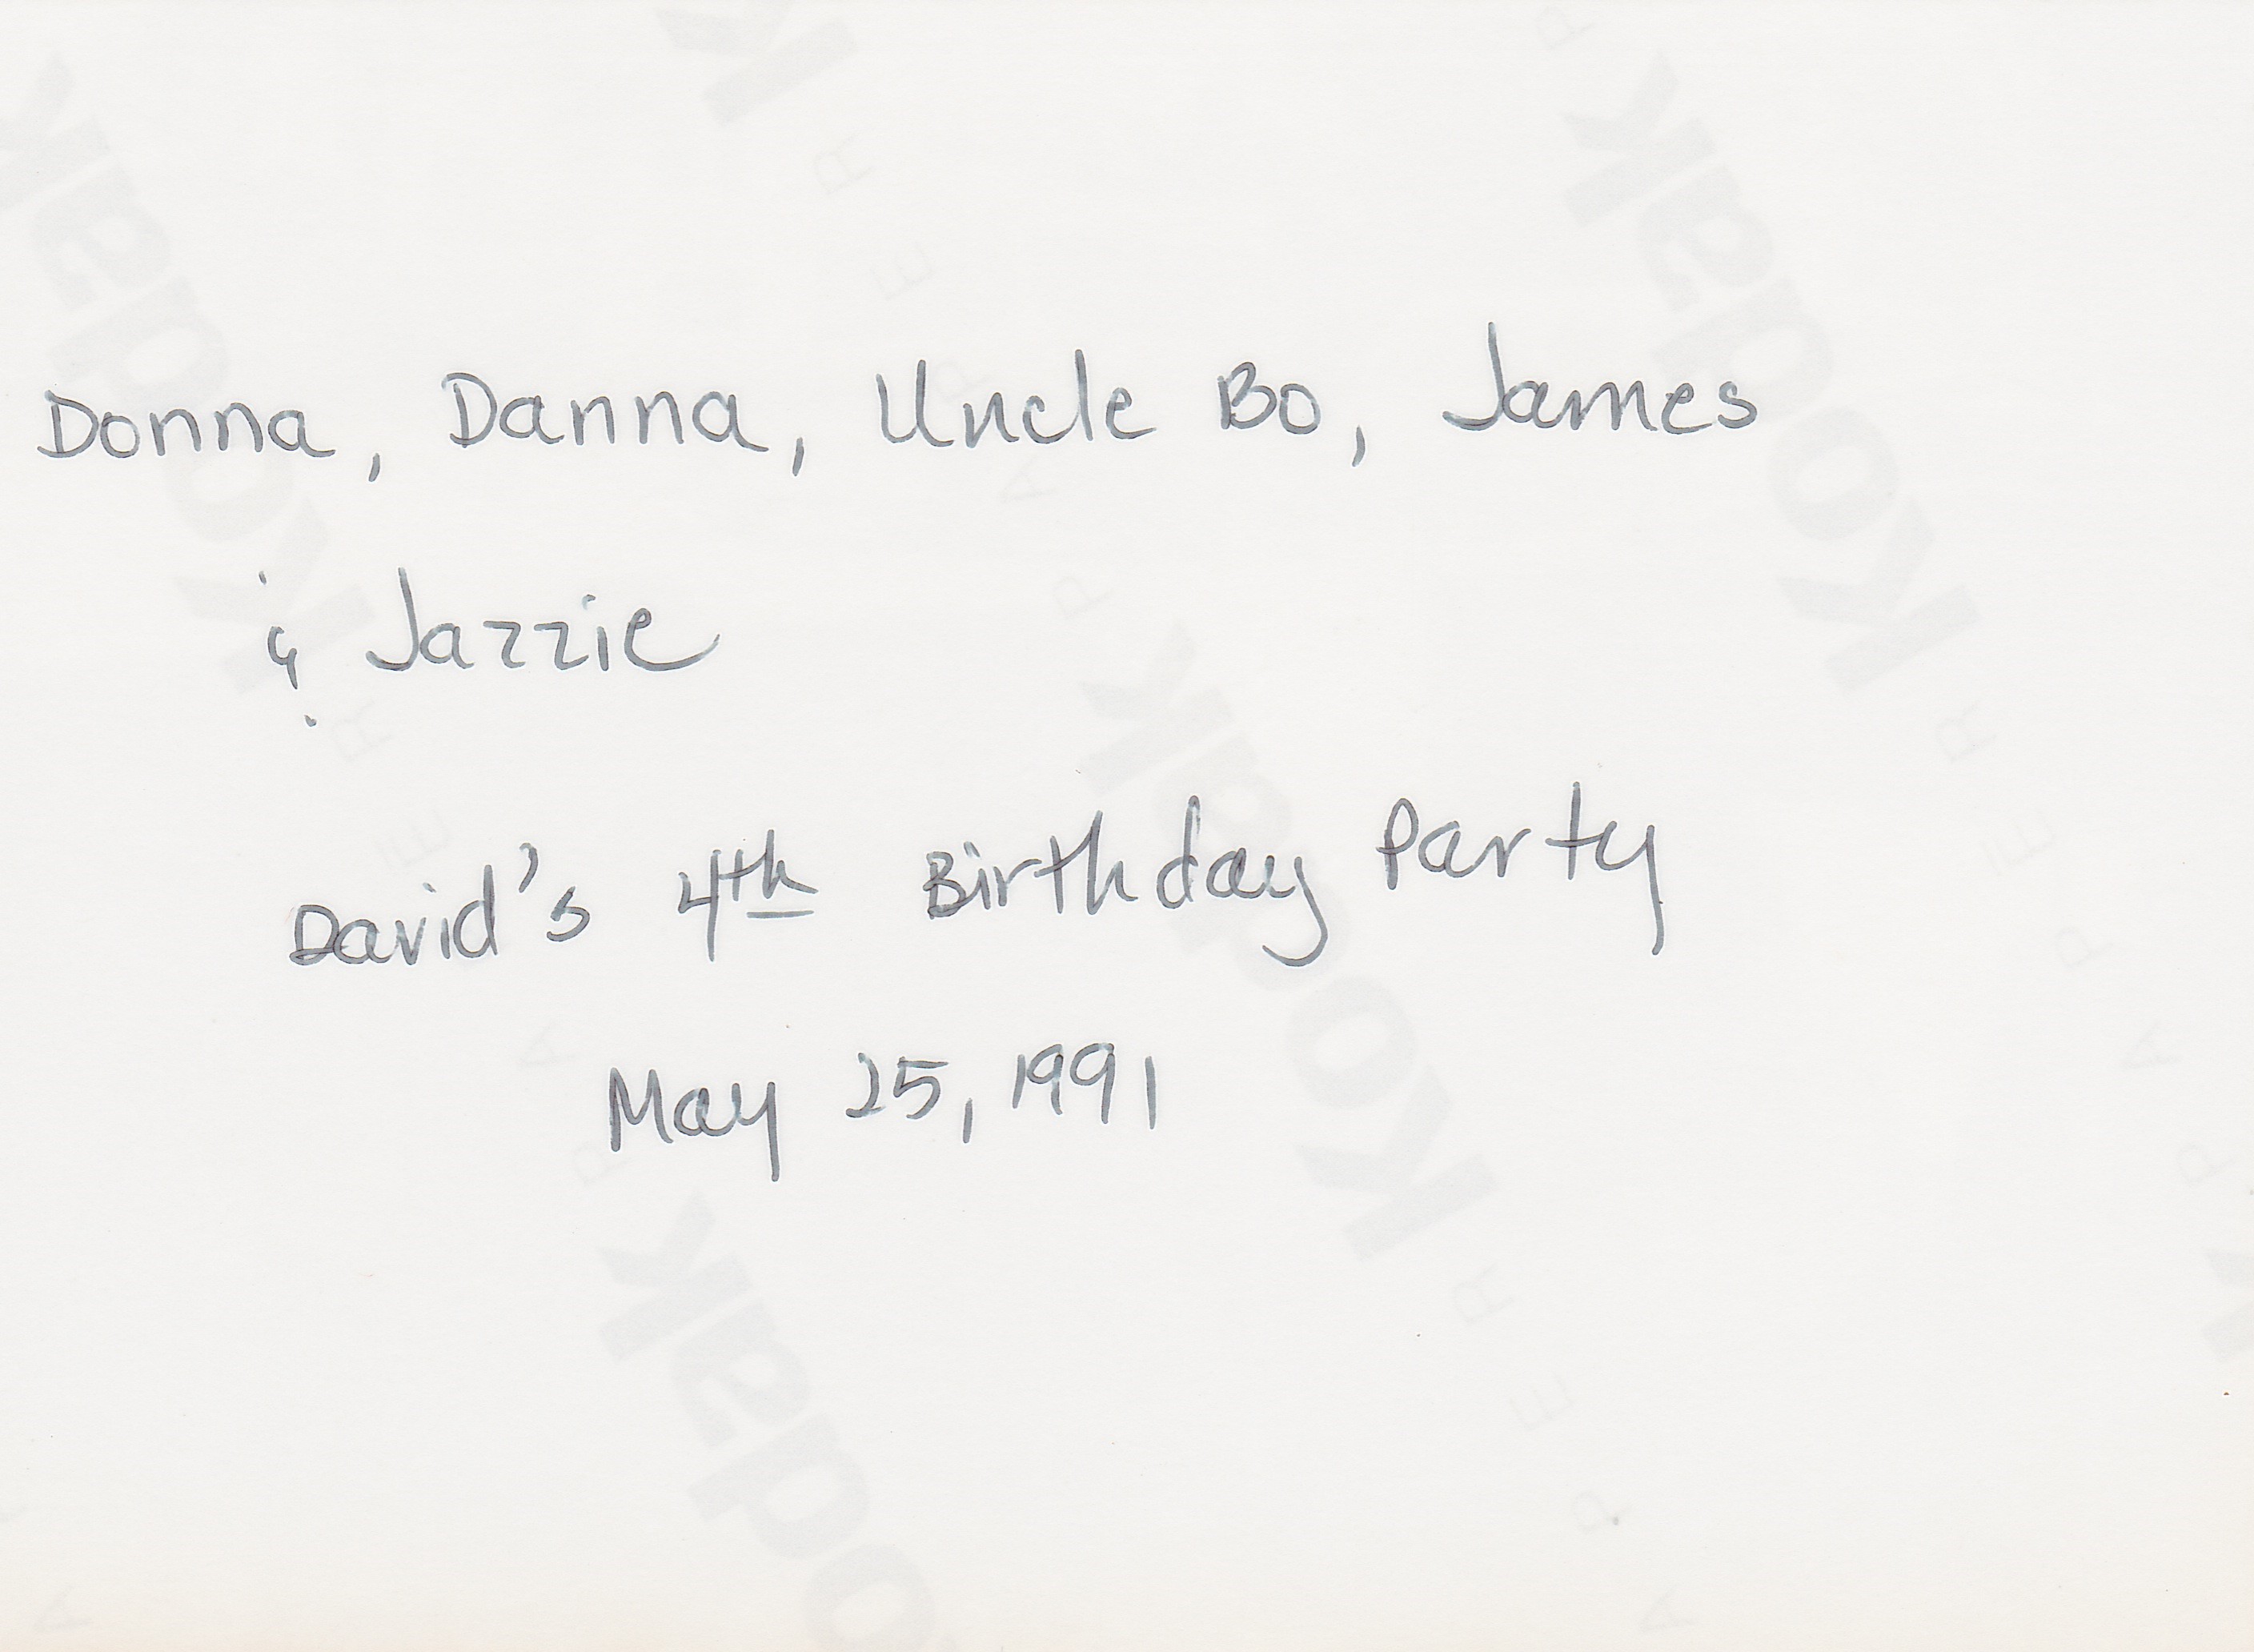 Donna, Danna, Uncle Bo, James
& Jazzie
David's 4th Birthday Party
May 25, 1991
Kodak
PAPER
Kodak
PAPER
Kodak
PAPER
Kodak